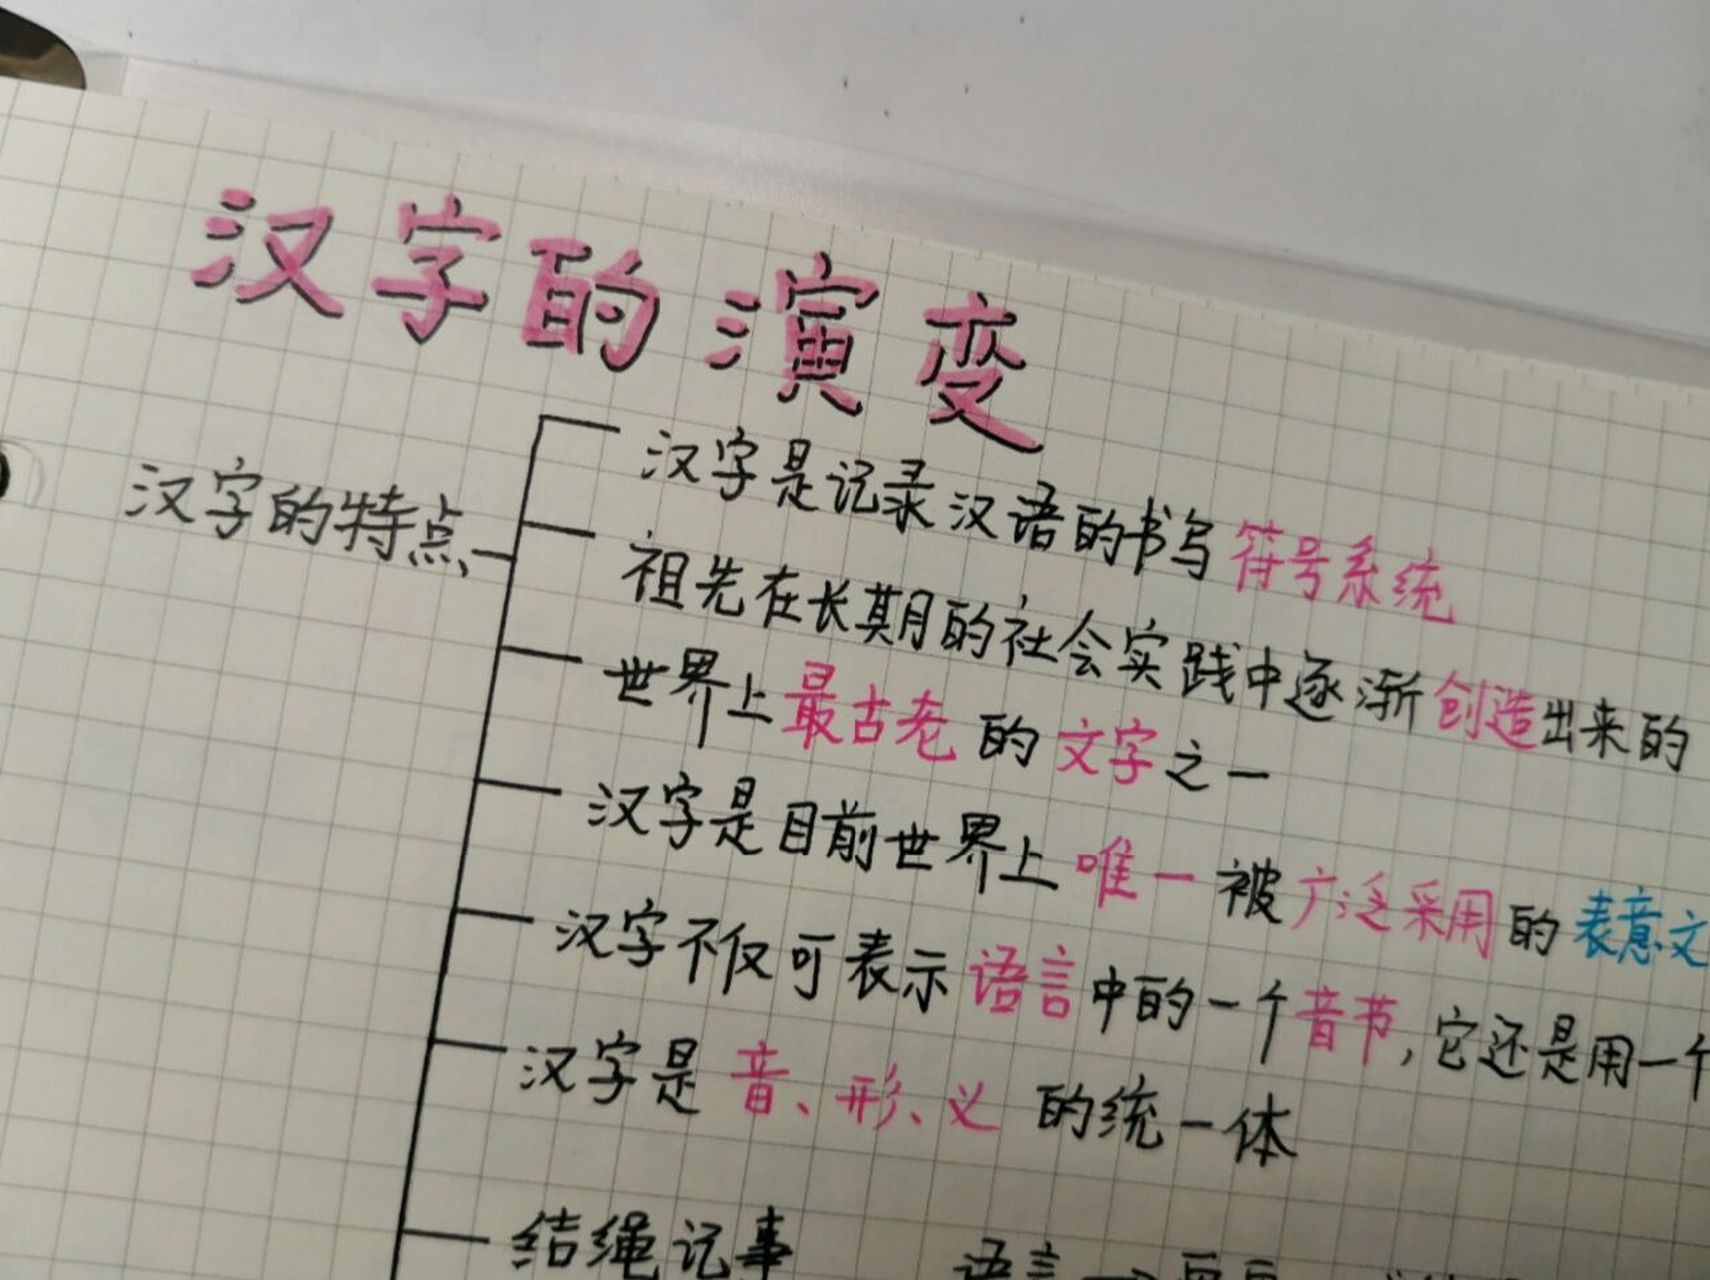 汉字的演变
汉字的特点
汉字是记录汉语的书写符号系统
祖先在长期的社会实践中逐渐创造出来的
世界上最古老的文字之一
汉字是目前世界上唯一被广泛采用的表意文
汉字不仅可表示语言中的一个音节,它还是用一个
汉字是音、形、义的统一体
结绳记事 语言→